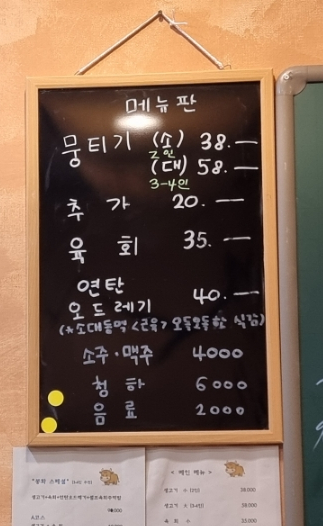 메뉴판
뭉티기 (소) 38.—
2인
(대) 58.—
3-4인
추 가 20.—
육 회 35.—
연탄
오드레기 40.—
(*소대동맥<근육> 오돌오돌한 식감)
소주·맥주 4000
청 하 6000
음 료 2000
< 메인 메뉴 >
생고기 소 (2인) 38,000
생고기 대
58,000
육 회 소